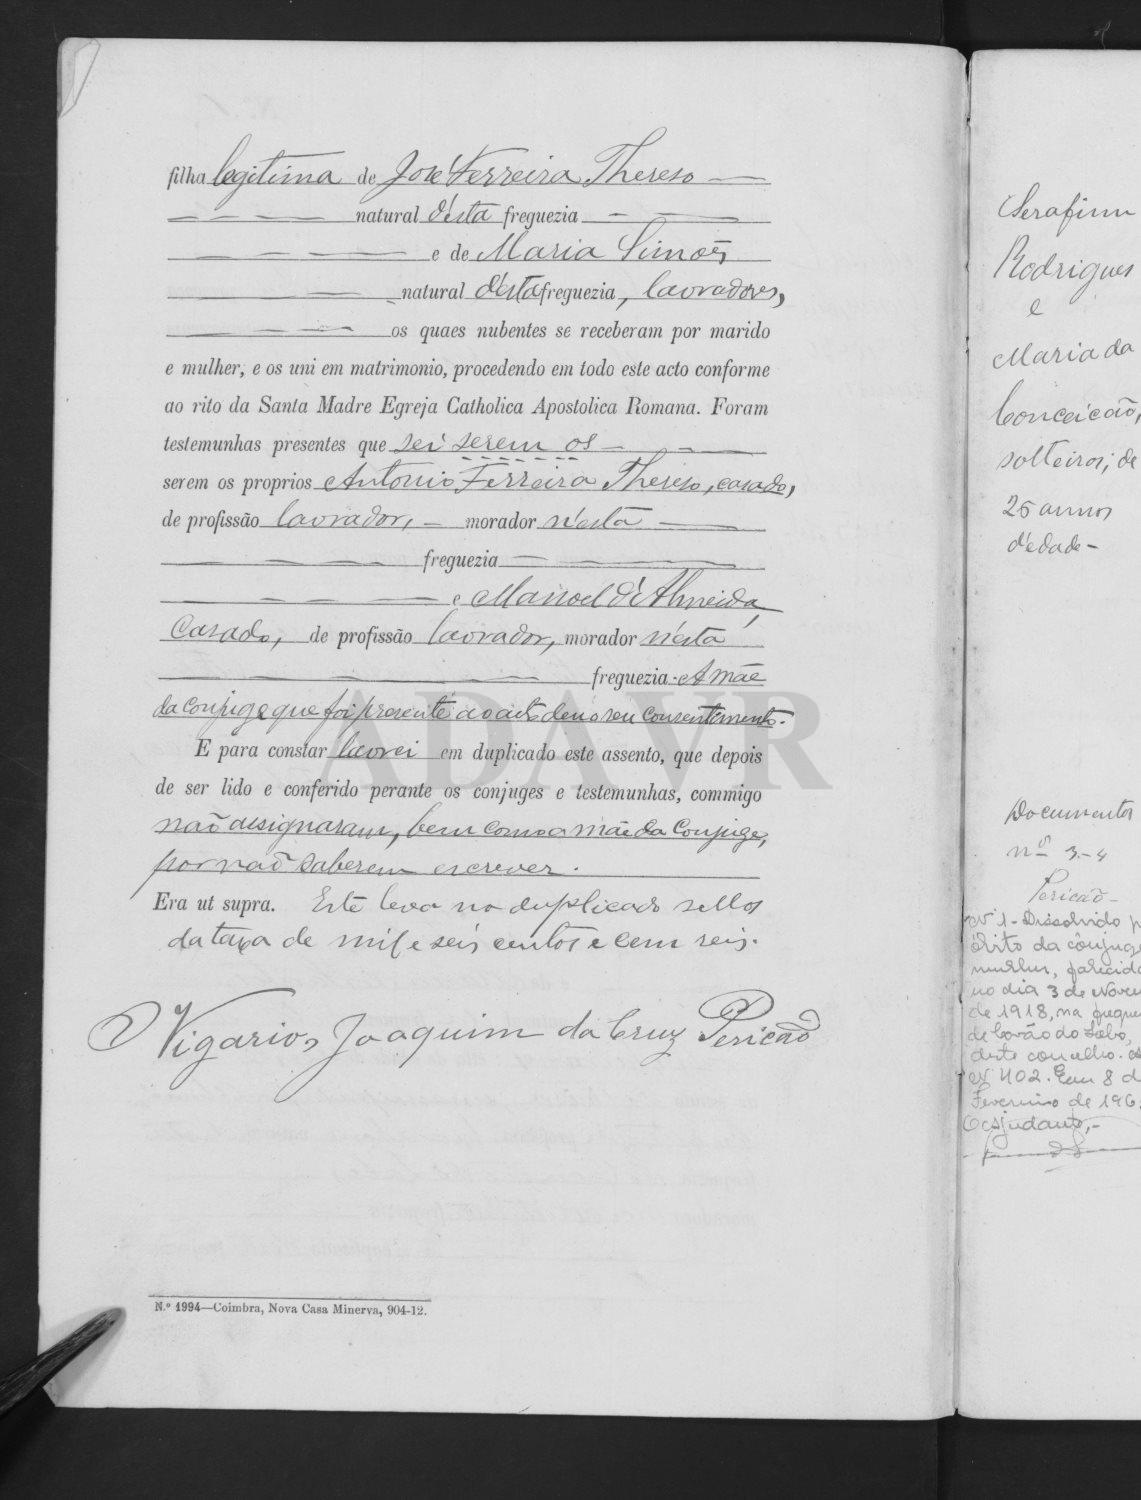 filha legitima de José Ferreira Thereso
natural d'esta freguezia
e de Maria Simões
natural d'esta freguezia, lavradores,
os quaes nubentes se receberam por marido
e mulher, e os uni em matrimonio, procedendo em todo este acto conforme
ao rito da Santa Madre Egreja Catholica Apostolica Romana. Foram
testemunhas presentes que sei serem os
serem os proprios Antonio Ferreira Thereso, casado,
de profissão lavrador, morador n'esta
freguezia
e Manoel d'Almeida,
casado, de profissão lavrador, morador n'esta
freguezia. A mãe
da conjuge que foi presente ao acto deu o seu consentimento.
E para constar lavrei em duplicado este assento, que depois
de ser lido e conferido perante os conjuges e testemunhas, commigo
não assignaram, bem como a mãe da conjuge,
por não saberem escrever.
Era ut supra. Este leva no duplicado sellos
da taxa de mil e seis centos e cem reis.
O Vigario, Joaquim da Cruz Pericão
N.º 1994—Coimbra, Nova Casa Minerva, 904-12.
ADAVR
Serafim
Rodrigues
e
Maria da
Conceicão,
solteiros, de
25 annos
d'edade-
Documentos
nos 3-4
Pericão-
Nº 1- Dissolvido p
óbito da cônjuge
mulher, falecida
no dia 3 de Novem
de 1918, na fregue
de Covão do Lobo,
deste concelho.
Nº 402. Em 8 d
Fevereiro de 196
O ajudante,-